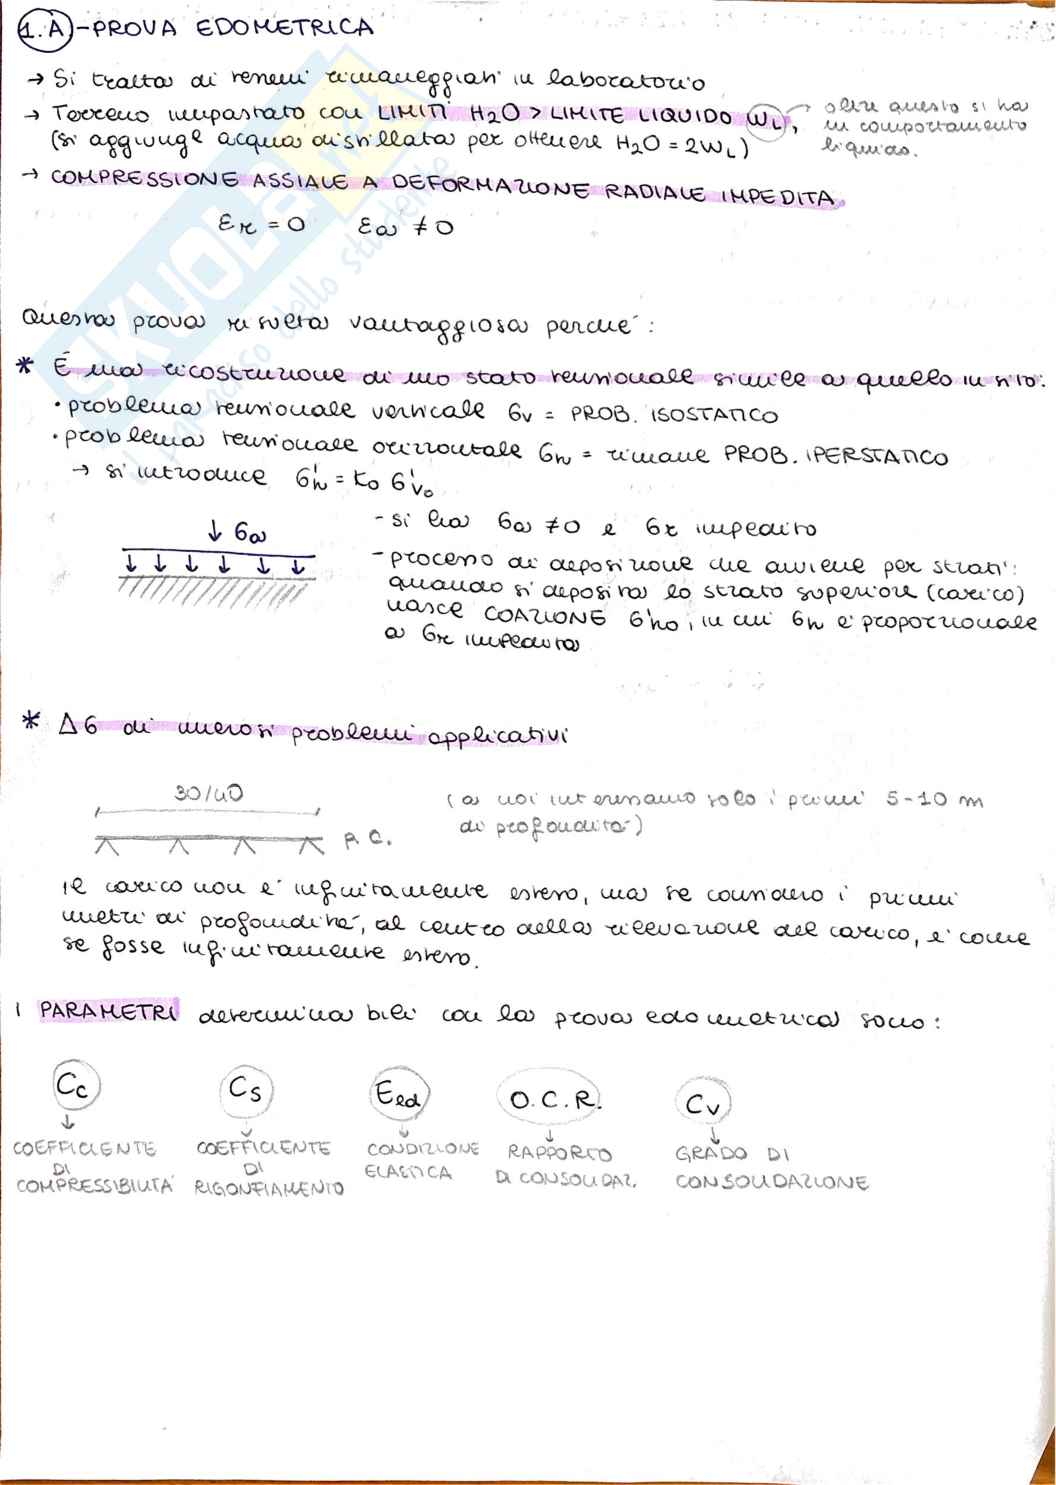 1.A - PROVA EDOMETRICA
→ Si tratta di terreni rimaneggiati in laboratorio
→ Terreno impastato con LIMITI H2O > LIMITE LIQUIDO WL, → oltre questo si ha
un comportamento
liquido.
(si aggiunge acqua distillata per ottenere H2O = 2WL)
→ COMPRESSIONE ASSIALE A DEFORMAZIONE RADIALE IMPEDITA.
εr = 0 εa ≠ 0
Questa prova risulta vantaggiosa perché:
* È una ricostruzione di uno stato tensionale simile a quello in sito:
• problema tensionale verticale σv = PROB. ISOSTATICO
• problema tensionale orizzontale σh = rimane PROB. IPERSTATICO
→ si introduce σ'h = k0 σ'v0
↓ σa
- si ha σa ≠ 0 e εr impedito
- processo di deposizione che avviene per strati:
quando si deposita lo strato superiore (carico)
nasce COAZIONE σ'h0, in cui σh è proporzionale
a εr impedita
* Δσ di numerosi problemi applicativi
30/40
P.C.
(a noi interessano solo i primi 5-10 m
di profondità)
Il carico non è infinitamente esteso, ma se considero i primi
metri di profondità, al centro della rilevazione del carico, è come
se fosse infinitamente esteso.
I PARAMETRI determinabili con la prova edometrica sono:
Cc Cs Eed O.C.R. Cv
COEFFICIENTE DI COMPRESSIBILITÀ
COEFFICIENTE DI RIGONFIAMENTO
CONDIZIONE ELASTICA
RAPPORTO DI CONSOLIDAZ.
GRADO DI CONSOLIDAZIONE
SKUOLA.net
il paradiso dello studente